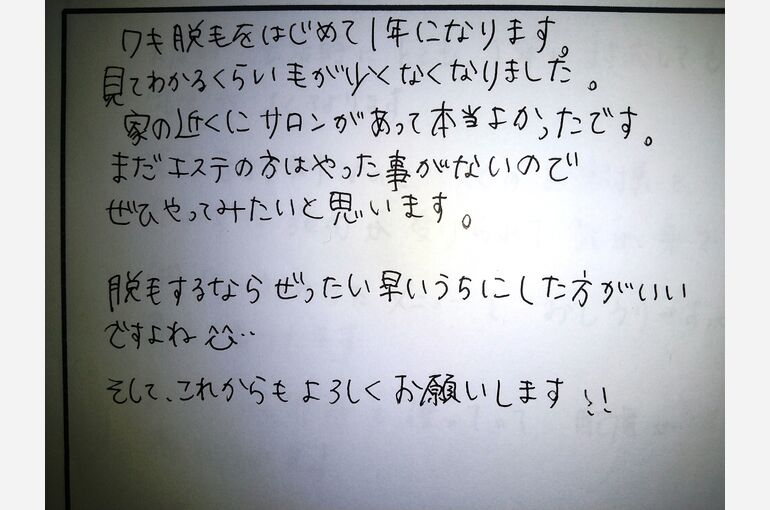 ワキ脱毛をはじめて1年になります。
見てわかるくらい毛が少くなくなりました。
家の近くにサロンがあって本当よかったです。
まだエステの方はやった事がないので
ぜひやってみたいと思います。
脱毛するならぜったい早いうちにした方がいい
ですよね
そして、これからもよろしくお願いします!!